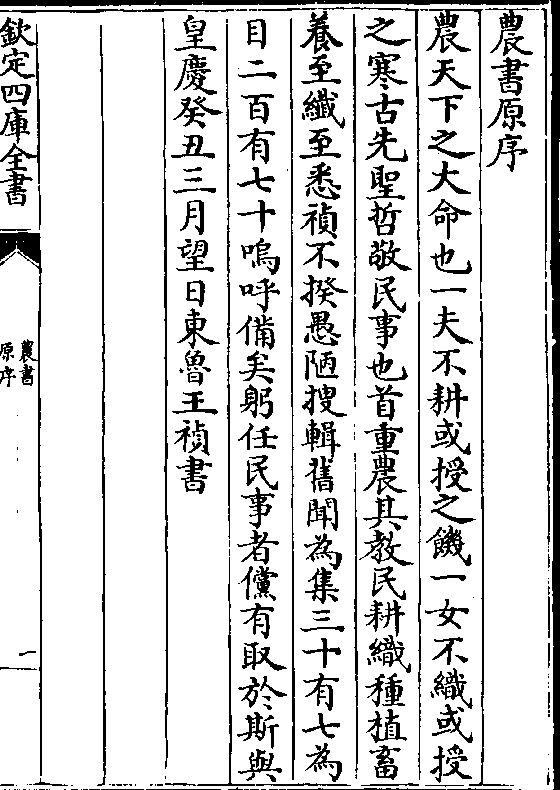 農書原序
農天下之大命也一夫不耕或授之饑一女不織或授
之寒古先聖哲敬民事也首重農其教民耕織種植畜
養至纖至悉禎不揆愚陋搜輯舊聞為集三十有七為
目二百有七十嗚呼備矣躬任民事者儻有取於斯與
皇慶癸丑三月望日東魯王禎書
欽定四庫全書
農書
原序
一